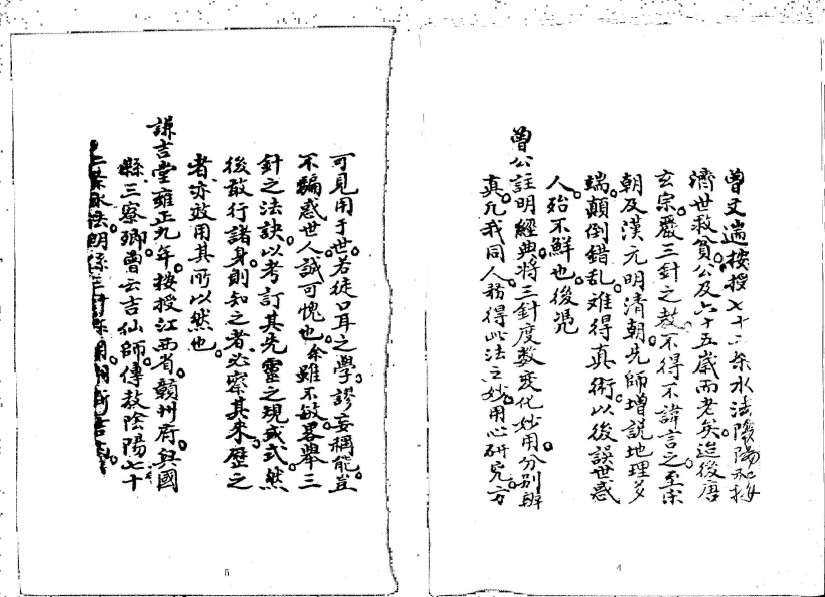 曾文遄按授七十二条水法陰陽和撥
濟世救貧公及六十五歲而老矣迨後唐
玄宗嚴三針之教不得不諱言之至宋
朝及漢元明清朝先師增説地理多
端顛倒錯乱难得真術以後誤世惑
人殆不鮮也後凴
曾公註明經典將三針度数变化妙用分别辨
真凢我同人務得此法之妙用心研究方
4
可見用于世若徒口耳之學謬妄稱能豈
不騙惑世人誠可愧也余雖不敏畧舉三
針之法訣以考訂其先靈之現或式然
後敢行諸身則知之者必察其来歷之
者亦效用其所以然也
謙吉堂雍正九年按授江西省贛州府兴國
縣三寮鄉曾云吉仙師傳教陰陽七十
二条水法
5